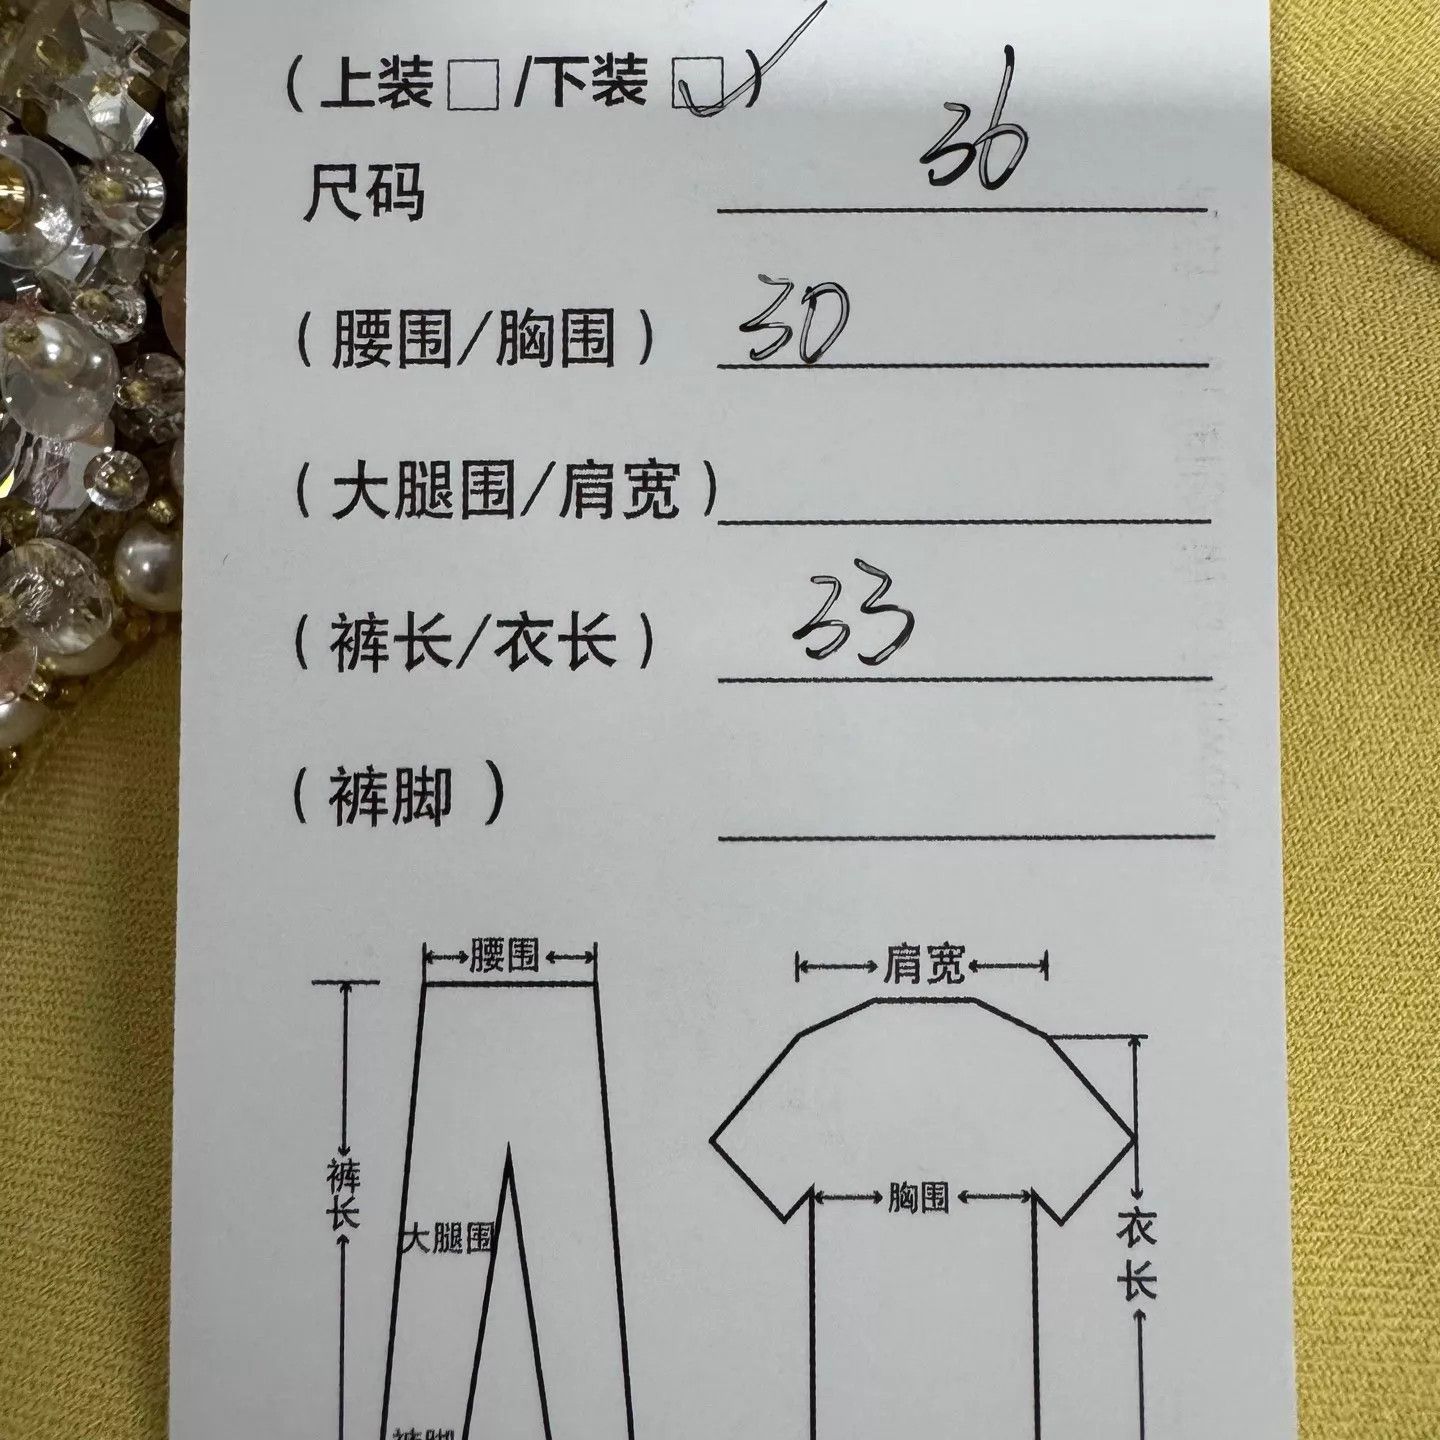 (上装□/下装☑)
尺码 36
(腰围/胸围) 30
(大腿围/肩宽)
(裤长/衣长) 33
(裤脚)
腰围
肩宽
裤长
大腿围
胸围
衣长
裤脚